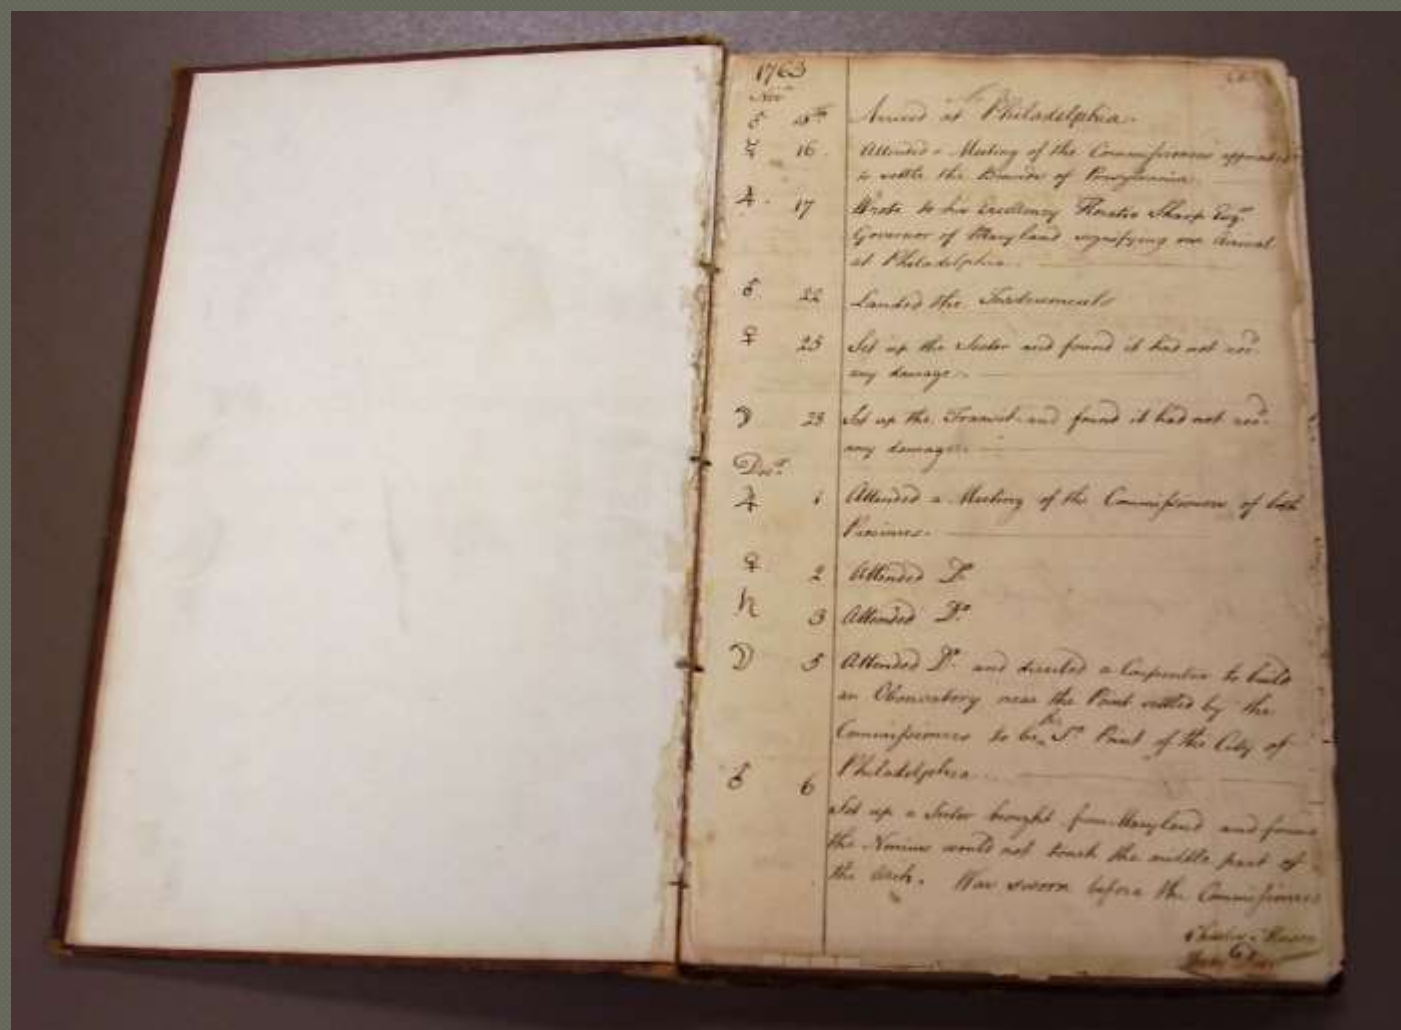 1763
Nov.r
♂ 15th Arrived at Philadelphia.
☿ 16. Attended a Meeting of the Commissioners appointed
to settle the Bounds of Pensylvania.
♃ 17 Wrote to his Excellency Horatio Sharp Esq.r
Governor of Maryland signifying our Arrival
at Philadelphia.
♂ 22 Landed the Instruments
♀ 25 Set up the Sector and found it had not rec.d
any damage.
☽ 28 Set up the Transit and found it had not rec.d
any damage.
Dec.r
♃ 1 Attended a Meeting of the Commissioners of both
Provinces.
♀ 2 Attended D.o
♄ 3 Attended D.o
☽ 5 Attended D.o and directed a Carpenter to build
an Observatory near the Point settled by the
Commissioners to be the S.o Point of the City of
Philadelphia.
♂ 6
Set up a Sector brought from Maryland and found
the Nonius would not touch the middle part of
the Arch. Was sworn before the Commissioners